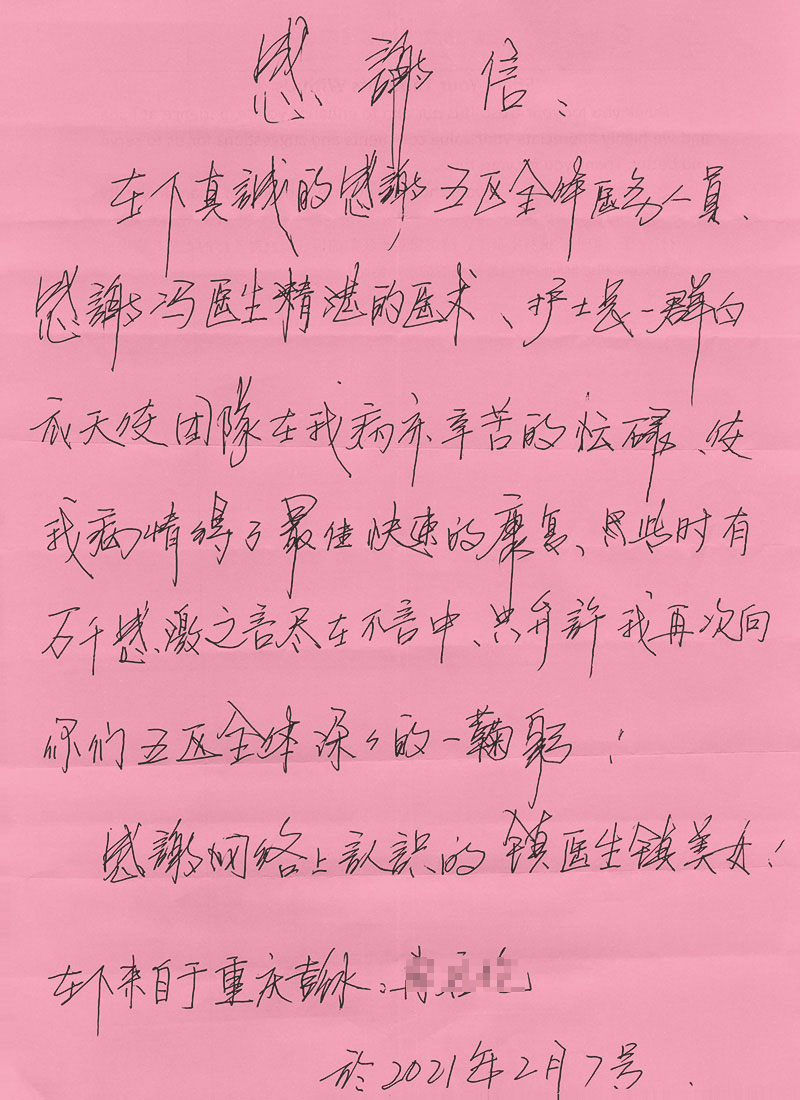 感謝信：
在下真誠的感謝五区全体医务人員、
感謝冯医生精湛的医术、护士長一群白
衣天使团隊在我病床辛苦的忙碌、使
我病情得了最佳快速的康复、此時有
万千感激之言尽在不言中、只允許我再次向
你们五区全体深々的一鞠躬！
感謝网络上認识的鎮医生鎮美女！
在下来自于重庆彭水：
於2021年2月7号.